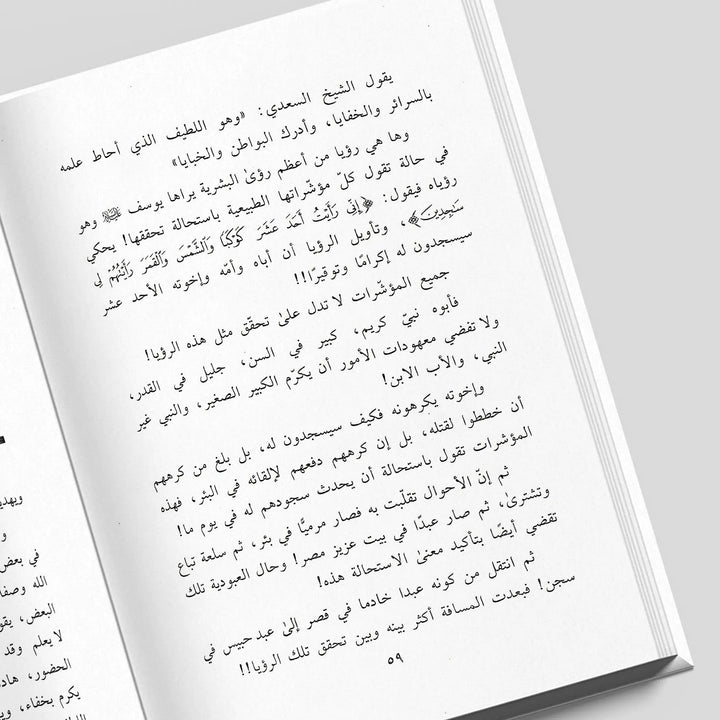 يقول الشيخ السعدي: «وهو اللطيف الذي أحاط علمه
بالسرائر والخفايا، وأدرك البواطن والخبايا»
وها هي رؤيا من أعظم رؤىٰ البشرية يراها يوسف ﷺ وهو
في حالة تقول كلّ مؤشّراتها الطبيعية باستحالة تحققها! يحكي
رؤياه فيقول: ﴿إِنِّي رَأَيْتُ أَحَدَ عَشَرَ كَوْكَبًا وَٱلشَّمْسَ وَٱلْقَمَرَ رَأَيْتُهُمْ لِي
سَٰجِدِينَ﴾، وتأويل الرؤيا أن أباه وأمّه وإخوته الأحد عشر
سيسجدون له إكرامًا وتوقيرًا!!
جميع المؤشّرات لا تدل علىٰ تحقّق مثل هذه الرؤيا!
فأبوه نبيّ كريم، كبير في السن، جليل في القدر،
ولا تفضي معهودات الأمور أن يكرّم الكبير الصغير، والنبي غير
النبي، والأب الابن!
وإخوته يكرهونه فكيف سيسجدون له، بل بلغ من كرههم
أن خططوا لقتله، بل إن كرههم دفعهم لإلقائه في البئر، فهذه
المؤشرات تقول باستحالة أن يحدث سجودهم له في يوم ما!
ثم إنّ الأحوال تقلّبت به فصار مرميًّا في بئر، ثم سلعة تباع
وتشترىٰ، ثم صار عبدًا في بيت عزيز مصر! وحال العبودية تلك
تقضي أيضًا بتأكيد معنىٰ الاستحالة هذه!
ثم انتقل من كونه عبدا خادما في قصر إلىٰ عبد حبيس في
سجن! فبعدت المسافة أكثر بينه وبين تحقق تلك الرؤيا!!
٥٩
ويهدي
في بعض
الله وصفا
البعض، يقو
لا يعلم وقد
الحضور، هاد
يكرم بخفاء، وي